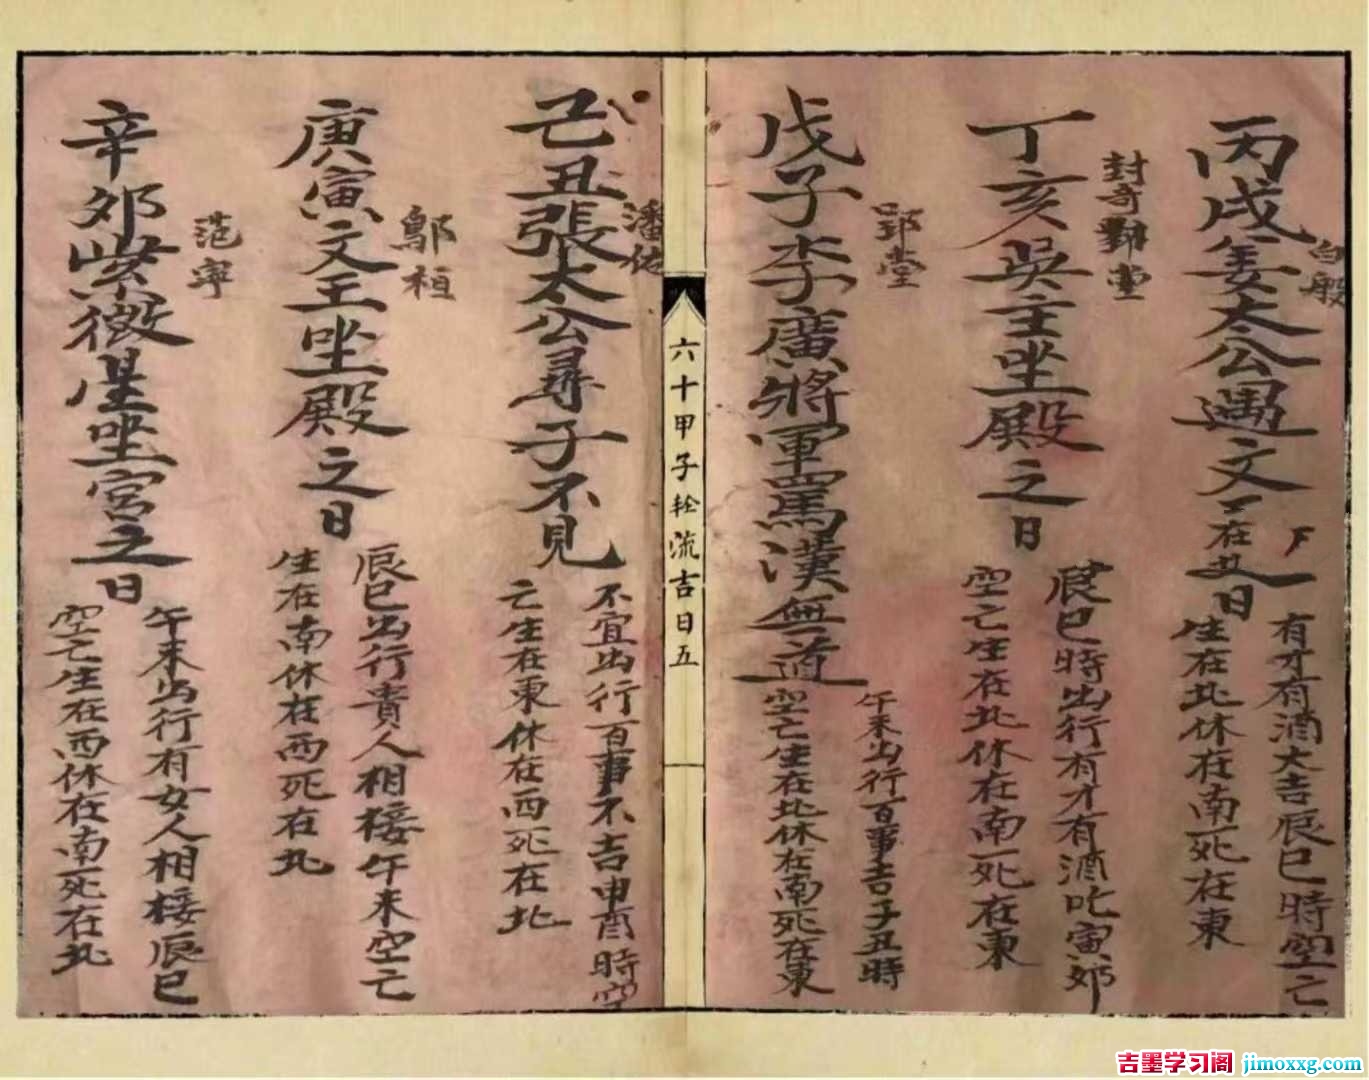 白般
丙戌姜太公遇文王在此日
下
有才有酒大吉辰巳時空亡
生在北休在南死在東
封奇鄞堂
丁亥吳主坐殿之日
辰巳時出行有才有酒吃寅郊
空亡生在北休在南死在東
郢堂
戊子李廣將軍罵漢無道
午未出行百事吉子丑時
空亡生在北休在南死在東
六十甲子轮流吉日五
潘佑
己丑張太公尋子不見
不宜出行百事不吉申酉時空
亡生在東休在西死在北
鄔桓
庚寅文王坐殿之日
辰巳出行貴人相接午未空亡
生在南休在西死在北
范寧
辛郊紫微星坐宮之日
午未出行有女人相接辰巳
空亡生在西休在南死在北
吉墨学习阁 jimoxxg.com